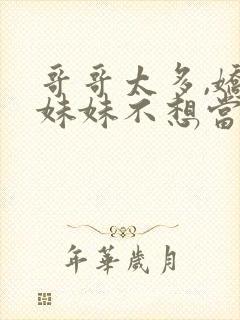 哥哥太多,嬌
妹妹不想當
年華歲月